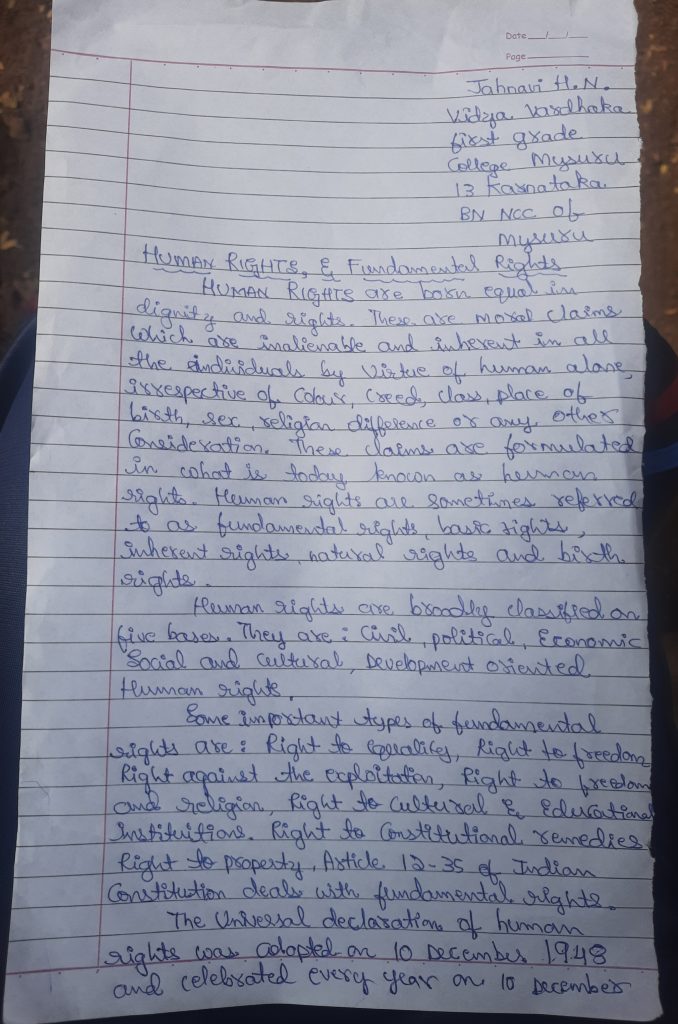 Date __/__/__
Page ________
Jahnavi H.N.
Vidya Vardhaka
first grade
College Mysuru
13 Karnataka
BN NCC of
Mysuru
HUMAN RIGHTS, & Fundamental Rights
HUMAN RIGHTS are born equal in
dignity and rights. These are moral claims
which are inalienable and inherent in all
the individuals by virtue of human alone,
irrespective of Colour, Creed, Class, place of
birth, sex, religion difference or any other
Consideration. These claims are formulated
in what is today known as human
rights. Human rights are sometimes referred
to as fundamental rights, basic rights,
inherent rights, natural rights and birth
rights.
Human rights are broadly classified on
five bases. They are : Civil, political, Economic
Social and Cultural, Development oriented
Human rights.
Some important types of fundamental
rights are : Right to equality, Right to freedom
Right against the exploitation, Right to freedom
and religion, Right to Cultural & Educational
Instituitions. Right to Constitutional remedies
Right to property. Article 12-35 of Indian
Constitution deals with fundamental rights.
The Universal declaration of human
rights was adopted on 10 December 1948
and celebrated every year on 10 December